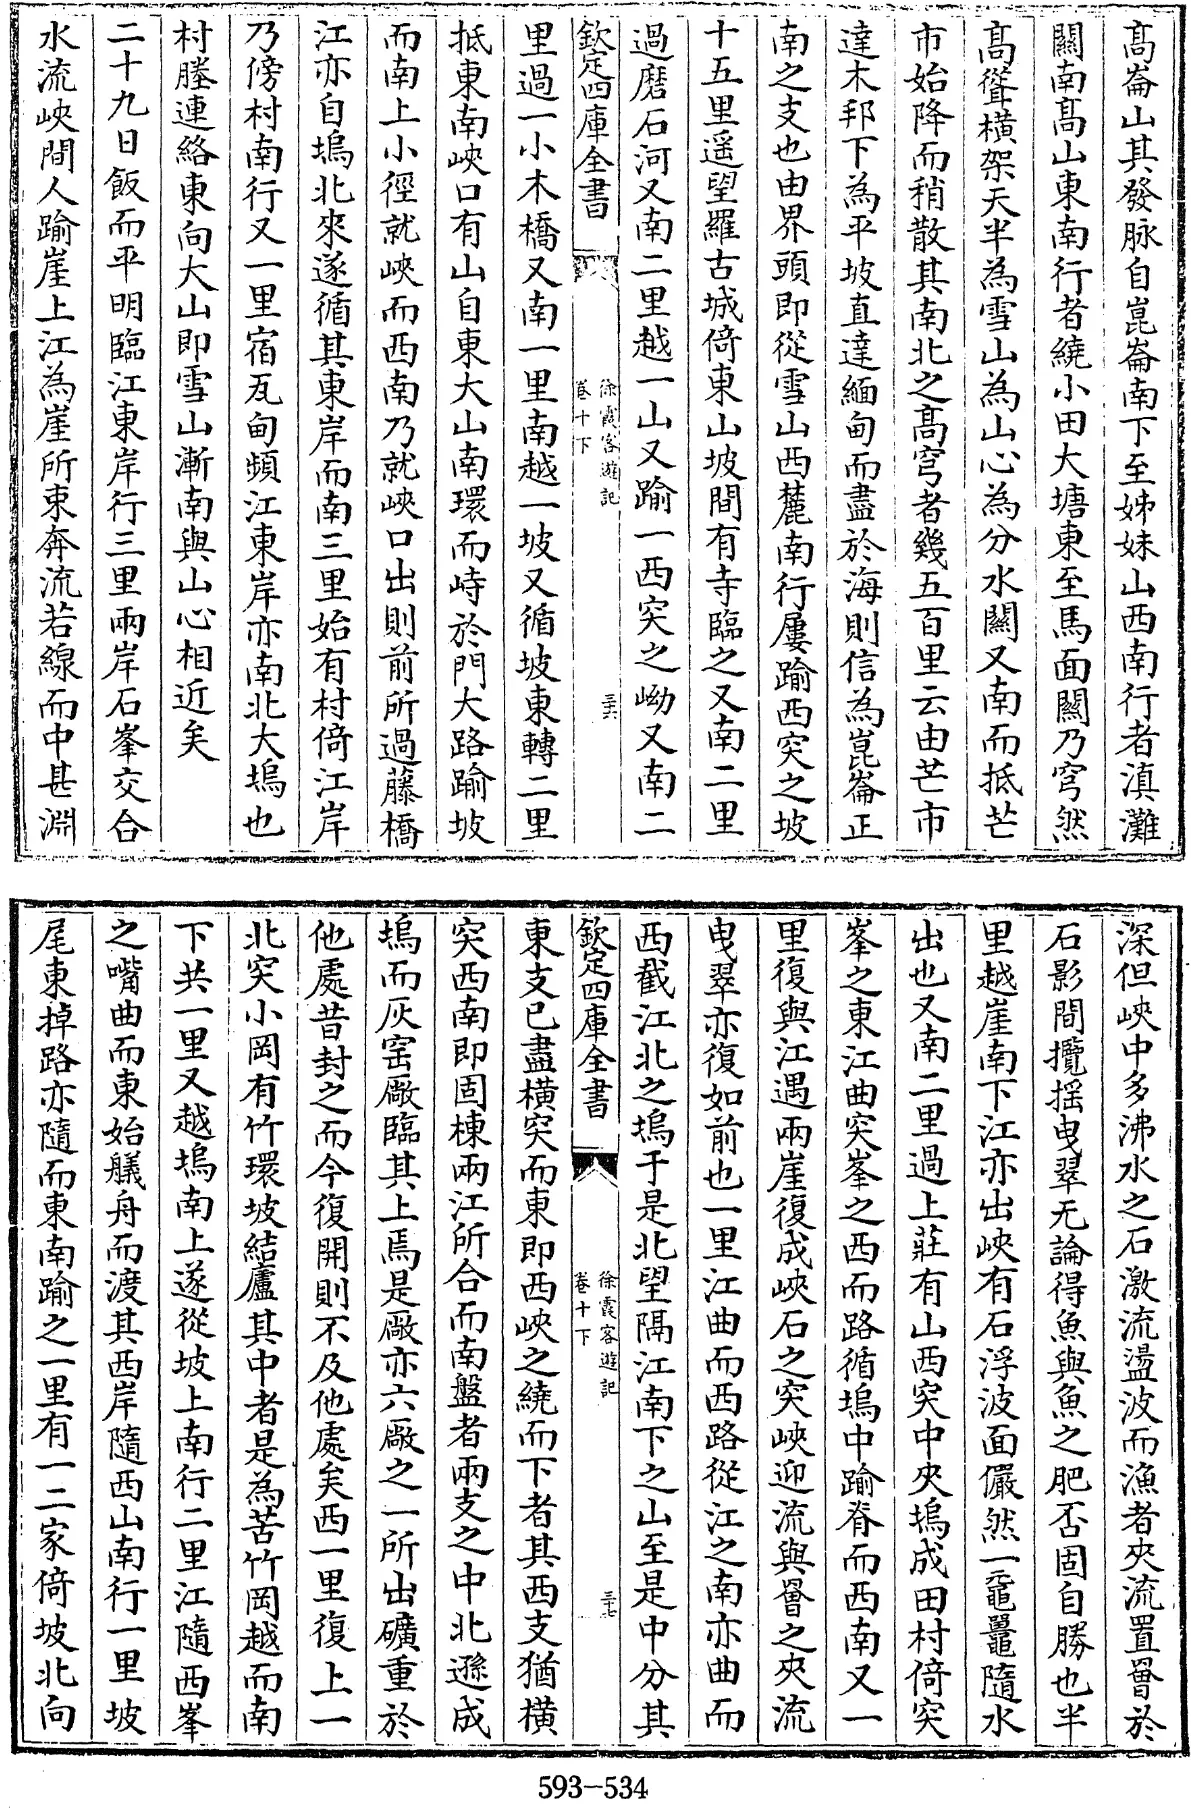 髙崙山其發脉自崑崙南下至姊妹山西南行者滇灘
關南髙山東南行者繞小田大塘東至馬面關乃穹然
髙聳橫架天半為雪山為山心為分水關又南而抵芒
市始降而稍散其南北之髙穹者幾五百里云由芒市
達木邦下為平坡直達緬甸而盡於海則信為崑崙正
南之支也由界頭即從雪山西麓南行屢踰西突之坡
十五里遥望羅古城倚東山坡間有寺臨之又南二里
過磨石河又南二里越一山又踰一西突之坳又南二
欽定四庫全書
徐霞客遊記
卷十下
三六
里過一小木橋又南一里南越一坡又循坡東轉二里
抵東南峽口有山自東大山南環而峙於門大路踰坡
而南上小徑就峽而西南乃就峽口出則前所過藤橋
江亦自塢北來遂循其東岸而南三里始有村倚江岸
乃傍村南行又一里宿瓦甸頻江東岸亦南北大塢也
村塍連絡東向大山即雪山漸南與山心相近矣
二十九日飯而平明臨江東岸行三里兩岸石峯交合
水流峽間人踰崖上江為崖所東奔流若線而中甚淵
深但峽中多沸水之石激流盪波而漁者夾流置罾於
石影間攪摇曳翠无論得魚與魚之肥否固自勝也半
里越崖南下江亦出峽有石浮波面儼然一黿鼉隨水
出也又南二里過上莊有山西突中夾塢成田村倚突
峯之東江曲突峯之西而路循塢中踰脊而西南又一
里復與江遇兩崖復成峽石之突峽迎流與罾之夾流
曳翠亦復如前也一里江曲而西路從江之南亦曲而
西截江北之塢于是北望隔江南下之山至是中分其
欽定四庫全書
徐霞客遊記
卷十下
三七
東支已盡橫突而東即西峽之繞而下者其西支猶橫
突西南即固棟兩江所合而南盤者兩支之中北遜成
塢而灰窰厰臨其上焉是厰亦六厰之一所出礦重於
他處昔封之而今復開則不及他處矣西一里復上一
北突小岡有竹環坡結廬其中者是為苦竹岡越而南
下共一里又越塢南上遂從坡上南行二里江隨西峯
之嘴曲而東始艤舟而渡其西岸隨西山南行一里坡
尾東掉路亦隨而東南踰之一里有一二家倚坡北向
593-534